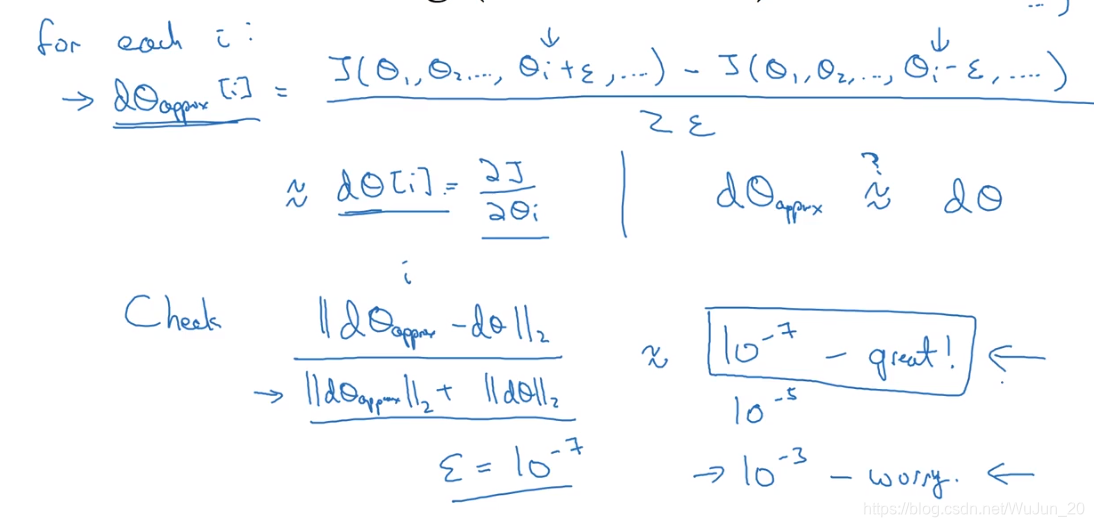 for each i:
→ dθapprox[i] = J(θ₁, θ₂, ..., θᵢ + ε, ....) - J(θ₁, θ₂, ..., θᵢ - ε, ....)
2ε
≈ dθ[i] = ∂J/∂θᵢ | dθapprox ≈? dθ
i
Check ‖dθapprox - dθ‖₂
→ ‖dθapprox‖₂ + ‖dθ‖₂ ≈ 10⁻⁷ - great! ←
10⁻⁵
ε = 10⁻⁷ → 10⁻³ - worry. ←
https://blog.csdn.net/WuJun_20